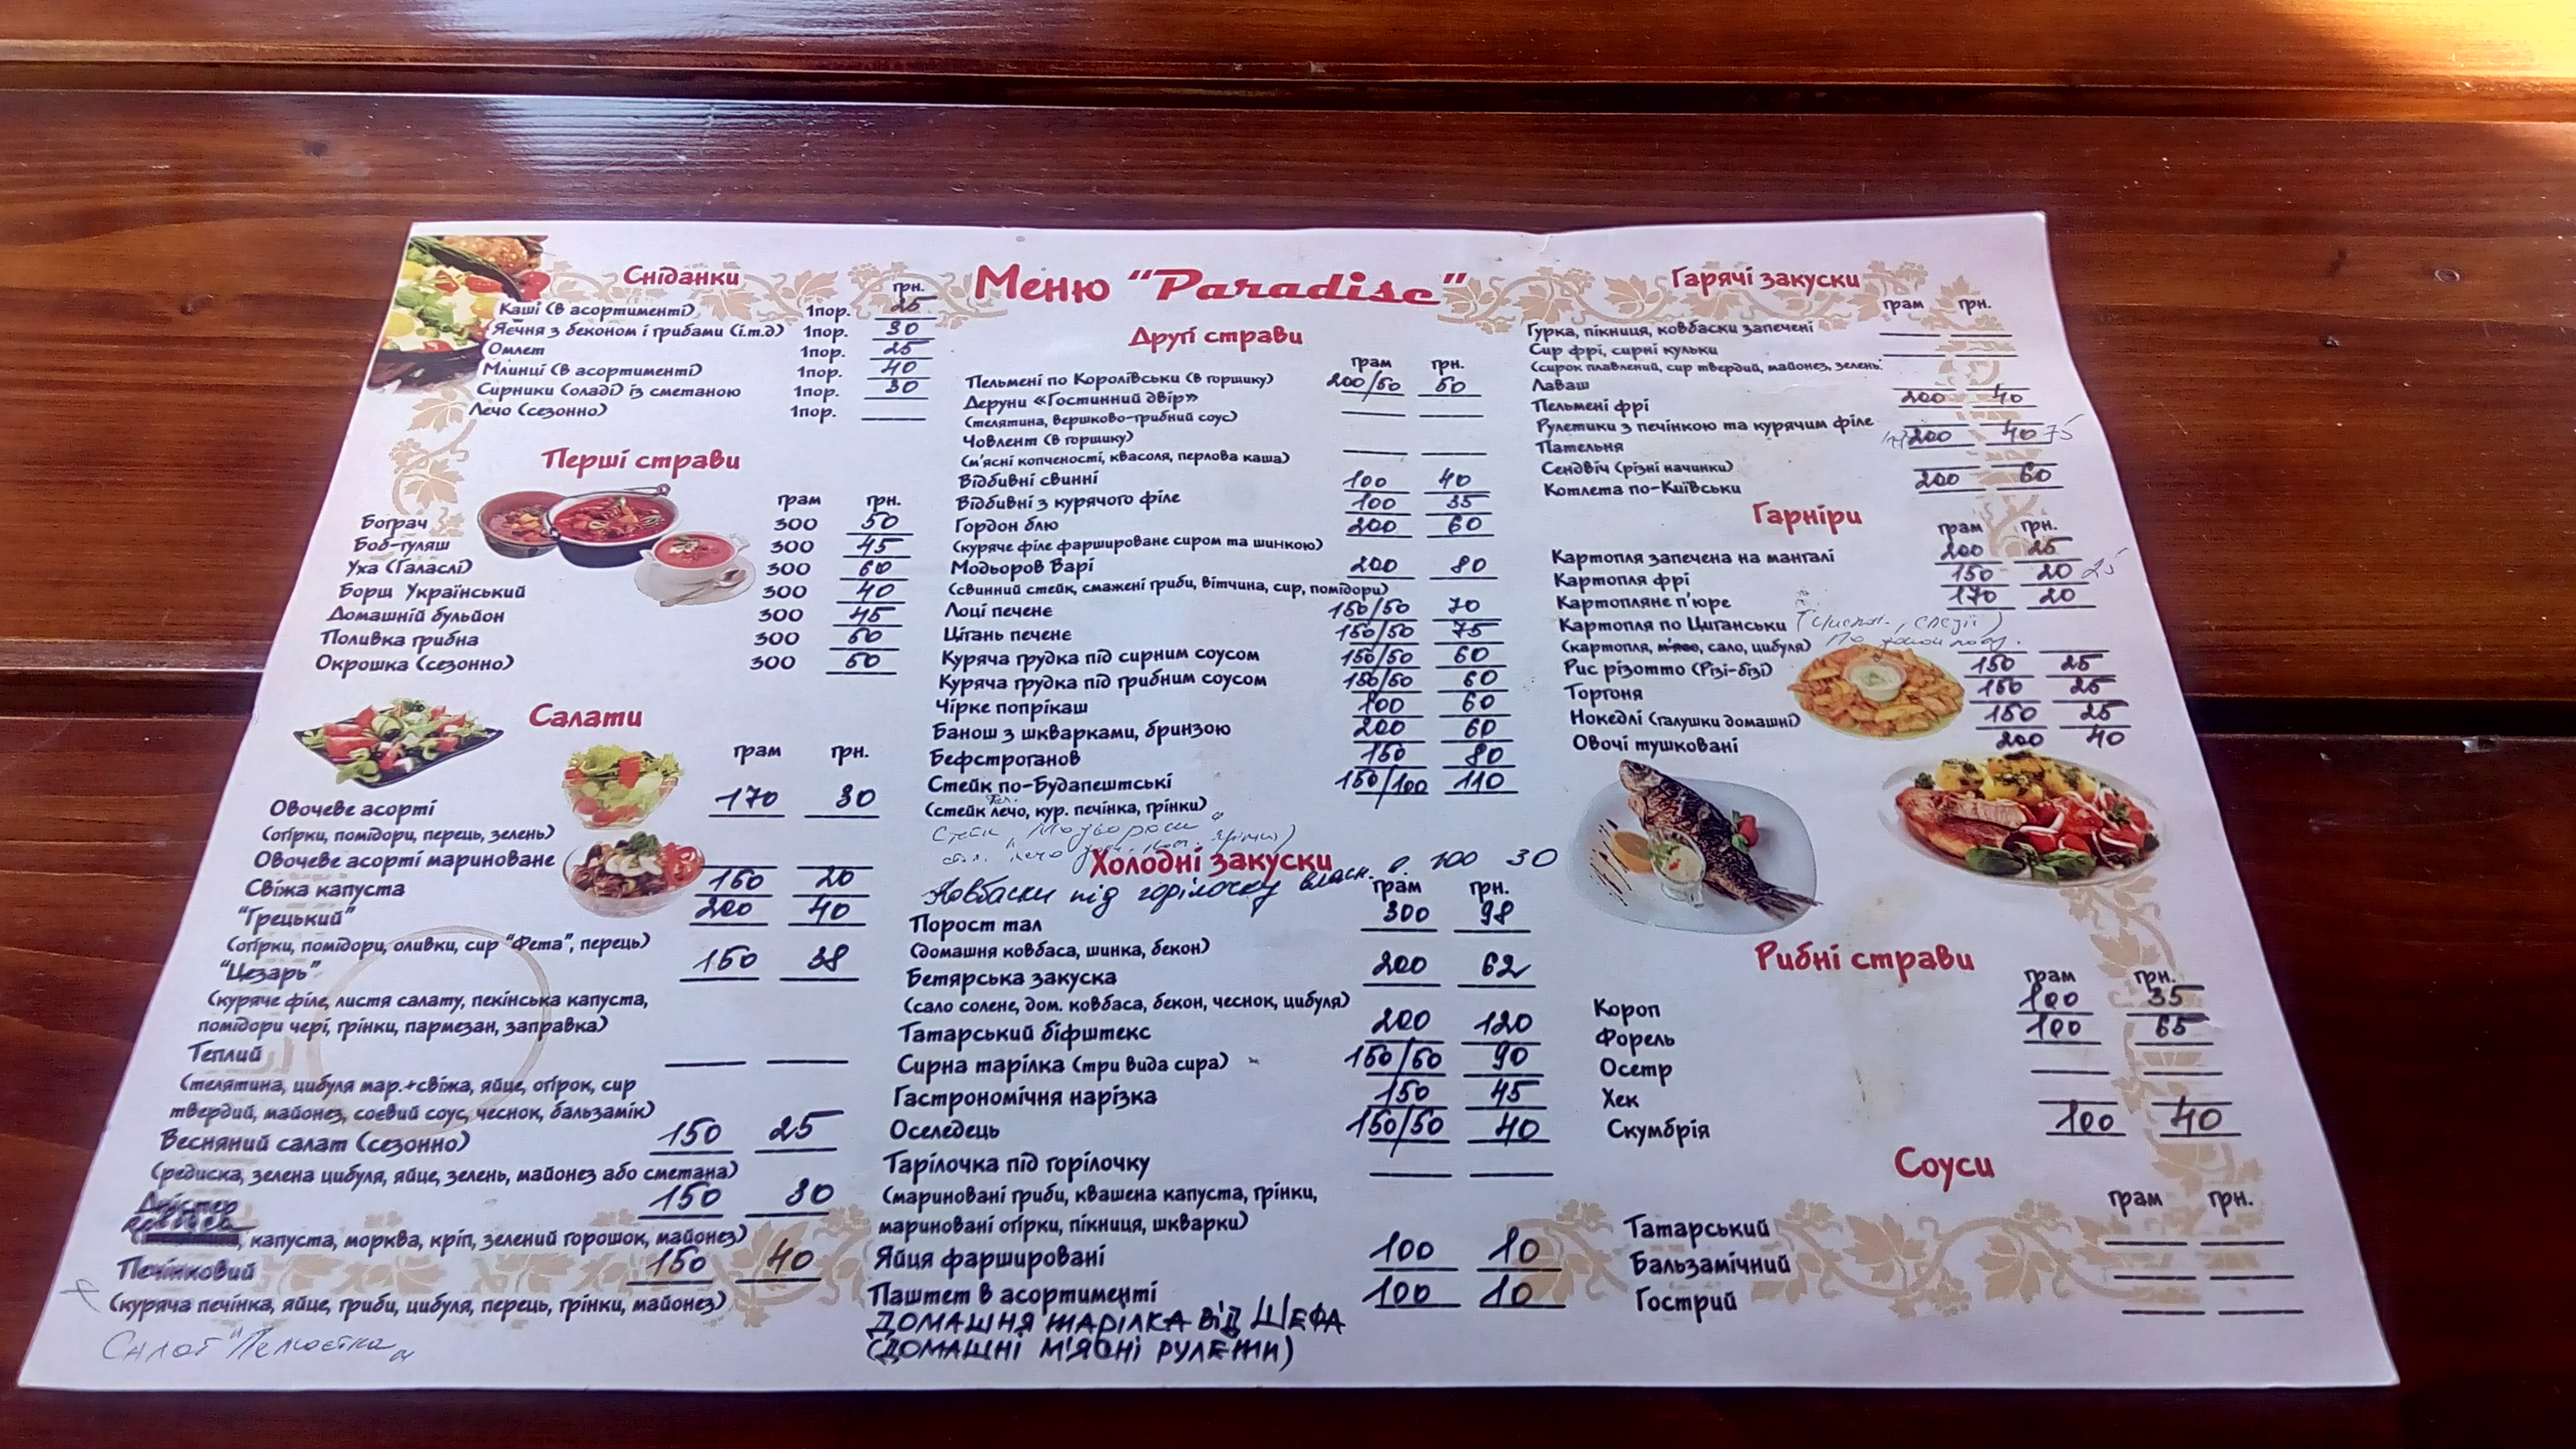 Меню "Paradise"
Сніданки
грн.
Каші (в асортименті) 1пор. 25
Яєчня з беконом і грибами (і.т.д) 1пор. 30
Омлет 1пор. 25
Млинці (в асортименті) 1пор. 40
Сирники (оладі) із сметаною 1пор. 30
Лечо (сезонно) 1пор.
Перші страви
грам грн.
Бограч 300 50
Боб-гуляш 300 45
Уха (Галаслі) 300 60
Борщ Український 300 40
Домашній бульйон 300 45
Поливка грибна 300 50
Окрошка (сезонно) 300 50
Салати
грам грн.
Овочеве асорті 170 30
(огірки, помідори, перець, зелень)
Овочеве асорті мариноване
Свіжа капуста 150 20
"Грецький" 200 40
(огірки, помідори, оливки, сир "Фета", перець)
"Цезарь" 150 38
(куряче філе, листя салату, пекінська капуста,
помідори чері, грінки, пармезан, заправка)
Теплий
(телятина, цибуля мар.+свіжа, яйце, огірок, сир
твердий, майонез, соєвий соус, чеснок, бальзамік)
Весняний салат (сезонно) 150 25
(редиска, зелена цибуля, яйце, зелень, майонез або сметана)
Дністер 150 30
, капуста, морква, кріп, зелений горошок, майонез)
Печінковий 150 40
(куряча печінка, яйце, гриби, цибуля, перець, грінки, майонез)
Салат
Другі страви
грам грн.
Пельмені по Королівськи (в горщику) 200/50 50
Деруни «Гостинний двір»
(телятина, вершково-грибний соус)
Човлент (в горщику)
(м'ясні копченості, квасоля, перлова каша)
Відбивні свинні 100 40
Відбивні з курячого філе 100 35
Гордон блю 200 60
(куряче філе фаршироване сиром та шинкою)
Модьоров Варі 200 80
(свинний стейк, смажені гриби, вітчина, сир, помідори)
Лоці печене 150/50 70
Цігань печене 150/50 75
Куряча грудка під сирним соусом 150/50 60
Куряча грудка під грибним соусом 150/50 60
Чірке попрікаш 100 60
Банош з шкварками, бринзою 200 60
Бефстроганов 150 80
Стейк по-Будапештські 150/100 110
(стейк лечо, кур. печінка, грінки)
Стейк
Холодні закуски
Ковбаски під горілочку власн. в. 100 30
грам грн.
Порост тал 300 98
(домашня ковбаса, шинка, бекон)
Бетярська закуска 200 62
(сало солене, дом. ковбаса, бекон, чеснок, цибуля)
Татарський біфштекс 200 120
Сирна тарілка (три вида сира) 150/50 90
Гастрономічна нарізка 150 45
Оселедець 150/50 40
Тарілочка під горілочку
(мариновані гриби, квашена капуста, грінки,
мариновані огірки, пікниця, шкварки)
Яйця фаршировані 100 10
Паштет в асортименті 100 10
ДОМАШНЯ ТАРІЛКА ВІД ШЕФА
(ДОМАШНІ М'ЯСНІ РУЛЕТИ)
Гарячі закуски
грам грн.
Гурка, пікниця, ковбаски запечені
Сир фрі, сирні кульки
(сирок плавлений, сир твердий, майонез, зелень)
Лаваш
Пельмені фрі 200 40
Рулетики з печінкою та курячим філе
Пательня 200 40 75
Сендвіч (різні начинки)
Котлета по-Київськи 200 60
Гарніри
грам грн.
Картопля запечена на мангалі 200 25
Картопля фрі 150 20 25
Картопляне п'юре 170 20
Картопля по Циганськи
(картопля, м'ясо, сало, цибуля)
Рис різотто (Різі-бізі) 150 25
Торгоня 150 25
Нокедлі (галушки домашні) 150 25
Овочі тушковані 200 40
Рибні страви
грам грн.
Короп 100 35
Форель 100 65
Осетр
Хек
Скумбрія 100 40
Соуси
грам грн.
Татарський
Бальзамічний
Гострий